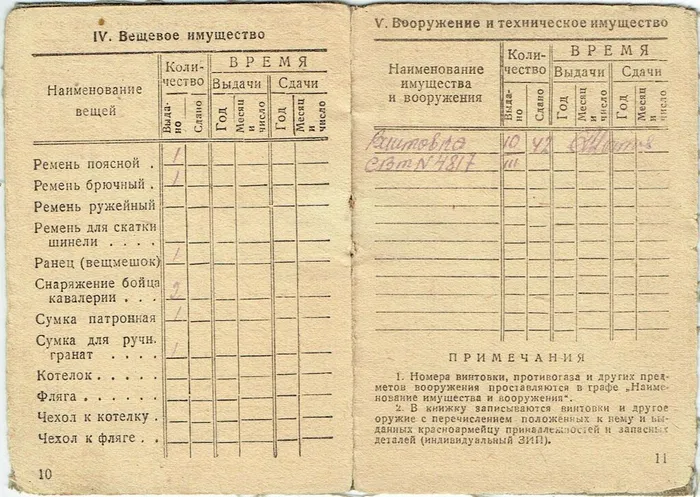 IV. Вещевое имущество
Наименование
вещей
Коли-
чество
ВРЕМЯ
Выдачи
Сдачи
Выда-
но
Сдано
Год
Месяц
и
число
Год
Месяц
и
число
Ремень поясной . 1
Ремень брючный . 1
Ремень ружейный
Ремень для скатки
шинели . . . .
Ранец (вещмешок) 1
Снаряжение бойца
кавалерии . . . . 2
Сумка патронная 1
Сумка для ручн.
гранат . . . . 1
Котелок . . . . .
Фляга . . . . . .
Чехол к котелку .
Чехол к фляге . .
10
V. Вооружение и техническое имущество
Наименование
имущества
и вооружения
Коли-
чество
ВРЕМЯ
Выдачи
Сдачи
Выда-
но
Сдано
Год
Месяц
и
число
Год
Месяц
и
число
Винтовка 10 42
СВТ N 4817 III
ПРИМЕЧАНИЯ
1. Номера винтовки, противогаза и других пред-
метов вооружения проставляются в графе „Наиме-
нование имущества и вооружения".
2. В книжку записываются винтовки и другое
оружие с перечислением положенных к нему и вы-
данных красноармейцу принадлежностей и запасных
деталей (индивидуальный ЗИП).
11